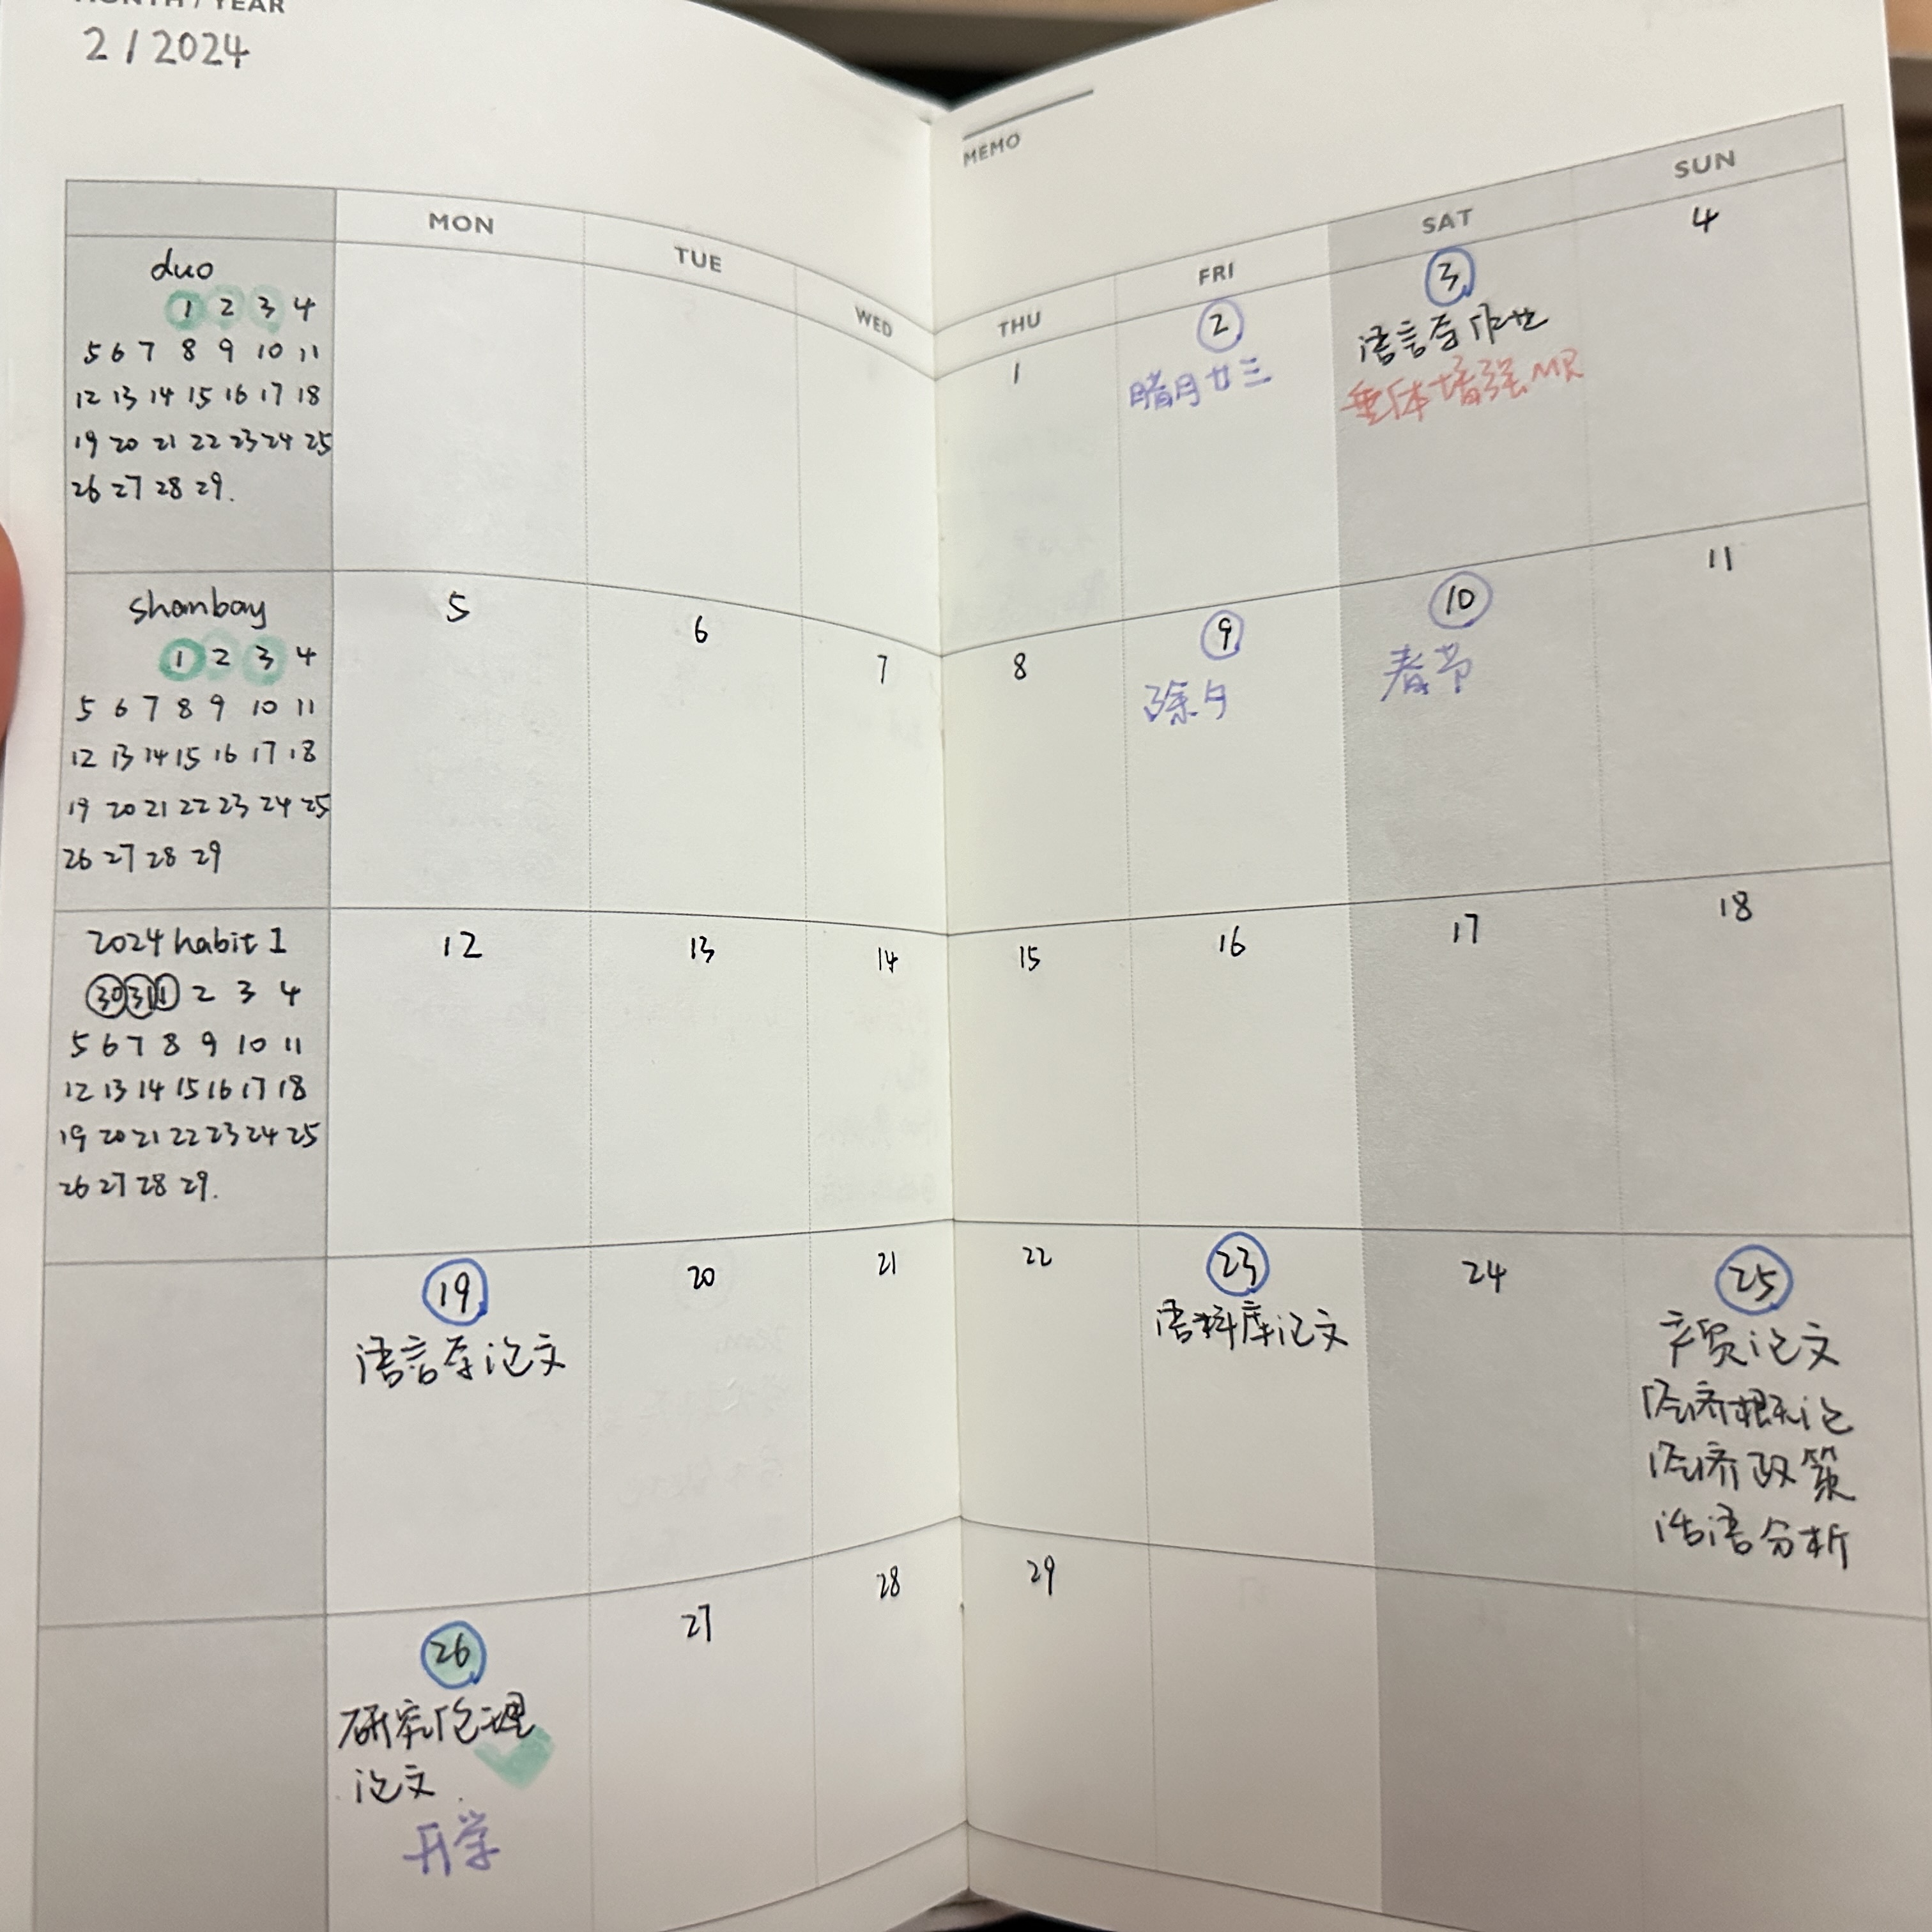 MONTH / YEAR
2 / 2024
MEMO
MON TUE WED THU FRI SAT SUN
duo
1 2 3 4
5 6 7 8 9 10 11
12 13 14 15 16 17 18
19 20 21 22 23 24 25
26 27 28 29.
1
2
腊月廿三
3
语言学作业
垂体增强MR
4
shanbay
1 2 3 4
5 6 7 8 9 10 11
12 13 14 15 16 17 18
19 20 21 22 23 24 25
26 27 28 29
5
6
7
8
9
除夕
10
春节
11
2024 habit 1
30 31 1 2 3 4
5 6 7 8 9 10 11
12 13 14 15 16 17 18
19 20 21 22 23 24 25
26 27 28 29.
12
13
14
15
16
17
18
19
语言学论文
20
21
22
23
语料库论文
24
25
产贸论文
经济概论
经济政策
话语分析
26
研究伦理
论文.
开学
27
28
29